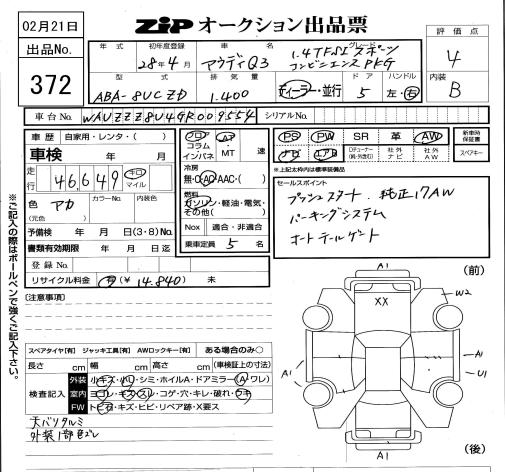 02月21日
出品No.
372
ZIP オークション出品票
評価点
4
内装
B
年式 初年度登録 車名 グレード
28年4月 アウディQ3 1.4TFSI スポーツ
コンビニエンスPKG
型式 排気量 ドア ハンドル
ABA-8UCZD 1.400 ディーラー・並行 5 左・右
車台No. WAUZZZ8U4GR009554 シリアルNo.
車歴 自家用・レンタ・( )
車検 年 月
走行 46,649 キロ マイル
色 アカ カラーNo. 内装色
(元色)
予備検 年 月 日(3・8)No.
書類有効期限 年 月 日迄
登録No.
リサイクル料金 有(¥ 14.840) 未
フロア
コラム
インパネ
AT
・
MT
速
冷房
無・C・AC・AAC・( )
燃料
ガソリン・軽油・電気・
その他( )
Nox 適合・非適合
乗車定員 5 名
PS PW SR 革 AW
新車時保証書
ナビ エアB
社外ナビ
社外AW
スペアキー
※上記太枠内は標準装備品
セールスポイント
プッシュスタート 純正17AW
パーキングシステム
オートテールゲート
(注意事項)
スペアタイヤ[有] ジャッキ工具[有] AWロックキー[有] ある場合のみ○
長さ cm 幅 cm 高さ cm (車検証上の寸法)
検査記入
外装 小キズ・小凹・シミ・ホイルA・ドアミラー(A・ワレ)
室内 ヨゴレ・キズ・スレ・コゲ・穴・キレ・破れ・ウキ
FW トビ石・キズ・ヒビ・リペア跡・X要ス
天バリタルミ
外装1部色ズレ
※ご記入の際はボールペンで強くご記入下さい。
(前)
A1
XX
W2
A1
A1
U1
A1
(後)